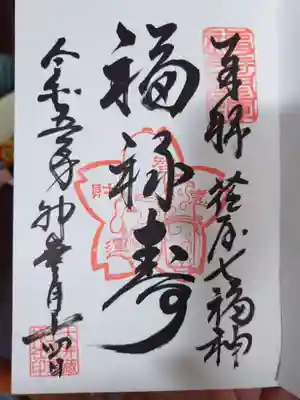 奉拝 荏原七福神
福禄寿
令和五年 卯 壱月十四日